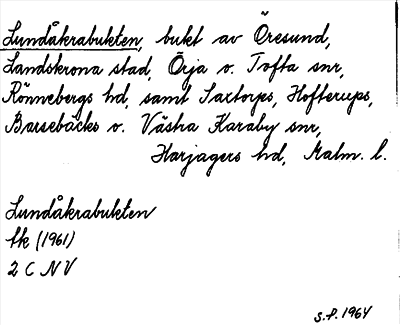 Lundåkrabukten, bukt av Öresund,
Landskrona stad, Örja o. Tofta snr,
Rönnebergs hd, samt Saxtorps, Hofterups,
Barsebäcks o. Västra Karaby snr,
Harjagers hd, Malm. l.
Lundåkrabukten
tk (1961)
2 C NV
S.P. 1964